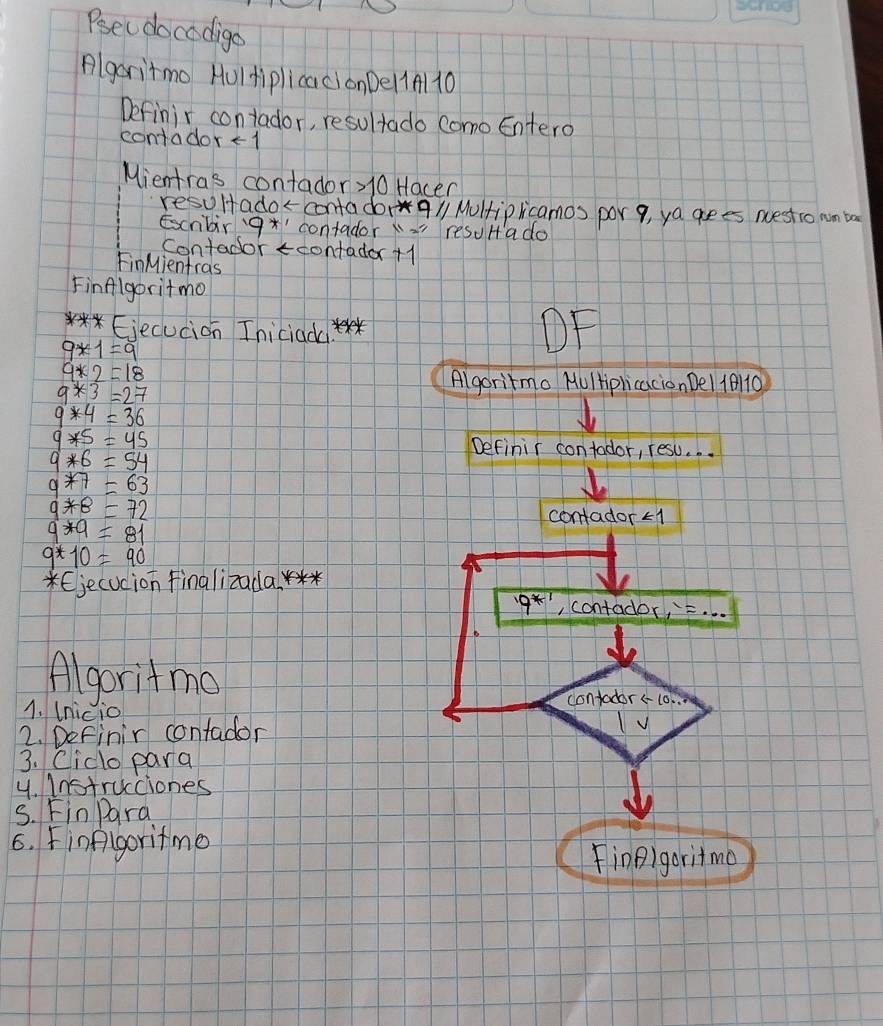 Scribe
Pseudocodigo
Algoritmo MultiplicacionDel1Al10
Definir contador, resultado Como Entero
contador ← 1
Mientras contador >10 Hacer
resultado ← contador * 9 // Multiplicamos por 9, ya que es nuestro
Escribir '9*' contador "=" resultado
Contador ← contador +1
FinMientras
FinAlgoritmo
*** Ejecución Iniciada. ***
9*1=9
9*2=18
9*3=27
9*4=36
9*5=45
9*6=54
9*7=63
9*8=72
9*9=81
9*10=90
*Ejecución Finalizada.***
Algoritmo
1. Inicio
2. Definir contador
3. Ciclo para
4. Instrucciones
5. Fin Para
6. FinAlgoritmo
DF
Algoritmo MultiplicacionDel1Al10
Definir contador, resu...
contador ← 1
'9*', contador, '=...
contador ← 10...
V
FinAlgoritmo